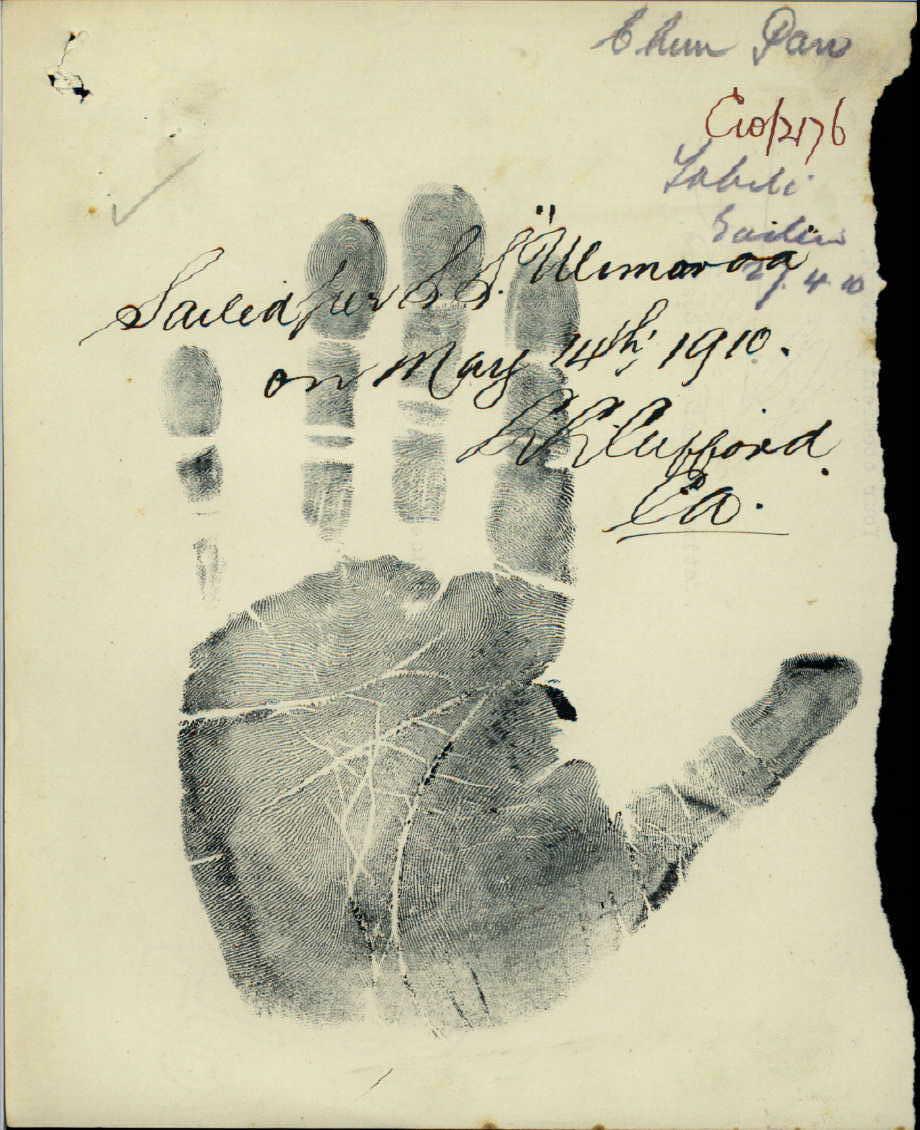 Chun Pan
C10/2176
27. 4. 10
Sailed per S. S. "Ulimaroa
on May 14th, 1910.
Clifford